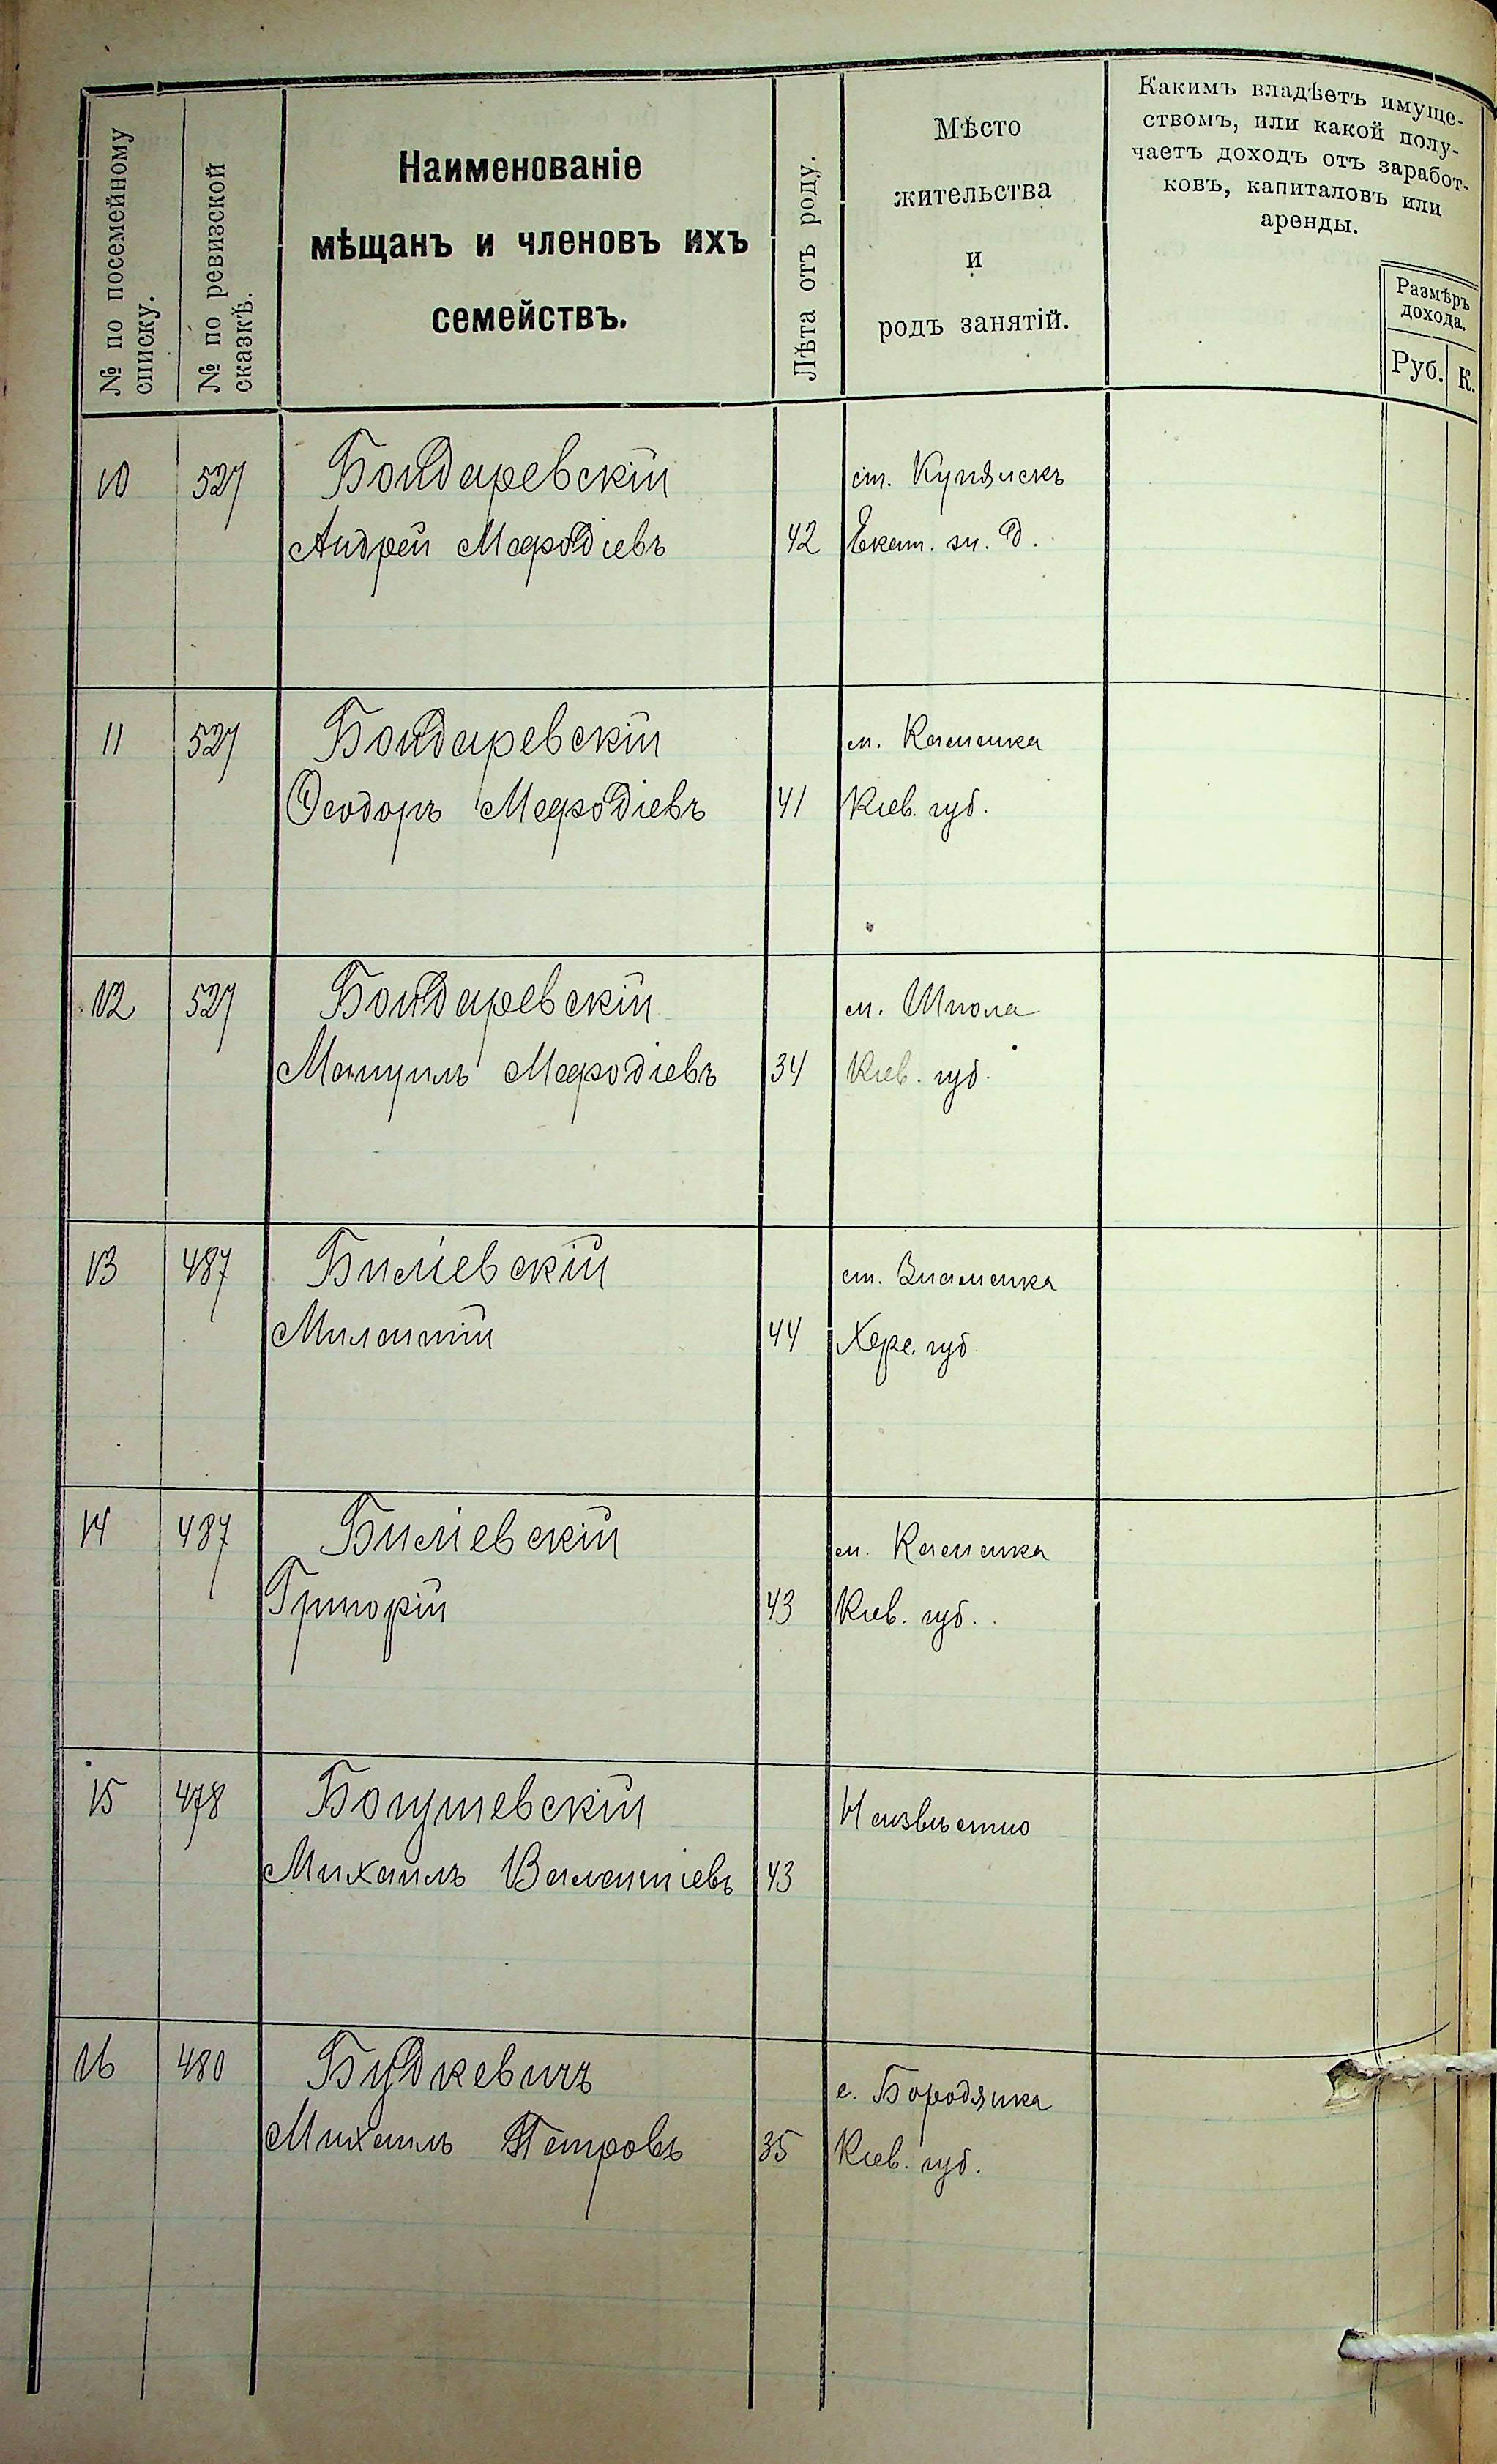 № по посемейному
списку.
№ по ревизской
сказкѣ.
Наименованіе
мѣщанъ и членовъ ихъ
семействъ.
Лѣта отъ роду.
Мѣсто
жительства
и
родъ занятій.
Какимъ владѣетъ имуще-
ствомъ, или какой полу-
чаетъ доходъ отъ заработ-
ковъ, капиталовъ или
аренды.
Размѣръ
дохода.
Руб. К.
10 527 Бондаревскій ст. Купянскъ
Андрей Мефодіевъ 42 Екат. ж. д.
11 527 Бондаревскій м. Каменка
Ѳеодоръ Мефодіевъ 41 Кіев. губ.
12 527 Бондаревскій м. Шпола
Мануилъ Мефодіевъ 34 Кіев. губ.
13 487 Билiевскій ст. Знаменка
Милентій 44 Херс. губ
14 487 Билiевскій м. Каменка
Григорій 43 Кіев. губ.
15 478 Богушевскій Неизвѣстно
Михаилъ Валентіевъ 43
16 480 Будкевичъ с. Бородянка
Михаилъ Петровъ 35 Кіев. губ.